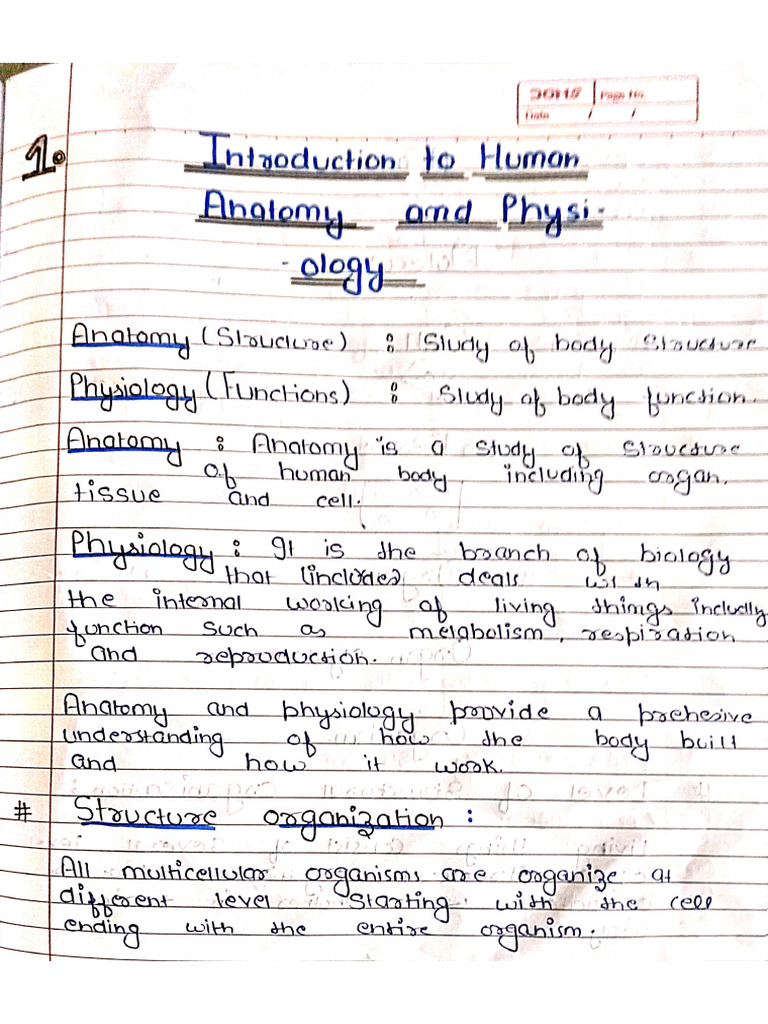 Page No.
Date / /
1.
Introduction to Human
Anatomy and Physi-
-ology
Anatomy (Structure) : Study of body structure
Physiology (Functions) : Study of body function.
Anatomy : Anatomy is a study of structure
of human body including organ.
tissue and cell.
Physiology : It is the branch of biology
that (includes) deals with
the internal working of living things includly
function such as metabolism, respiration
and reproduction.
Anatomy and physiology provide a prehesive
understanding of how the body built
and how it work.
# Structure organization :
All multicellular organisms are organize at
different level starting with the cell
ending with the entire organism.